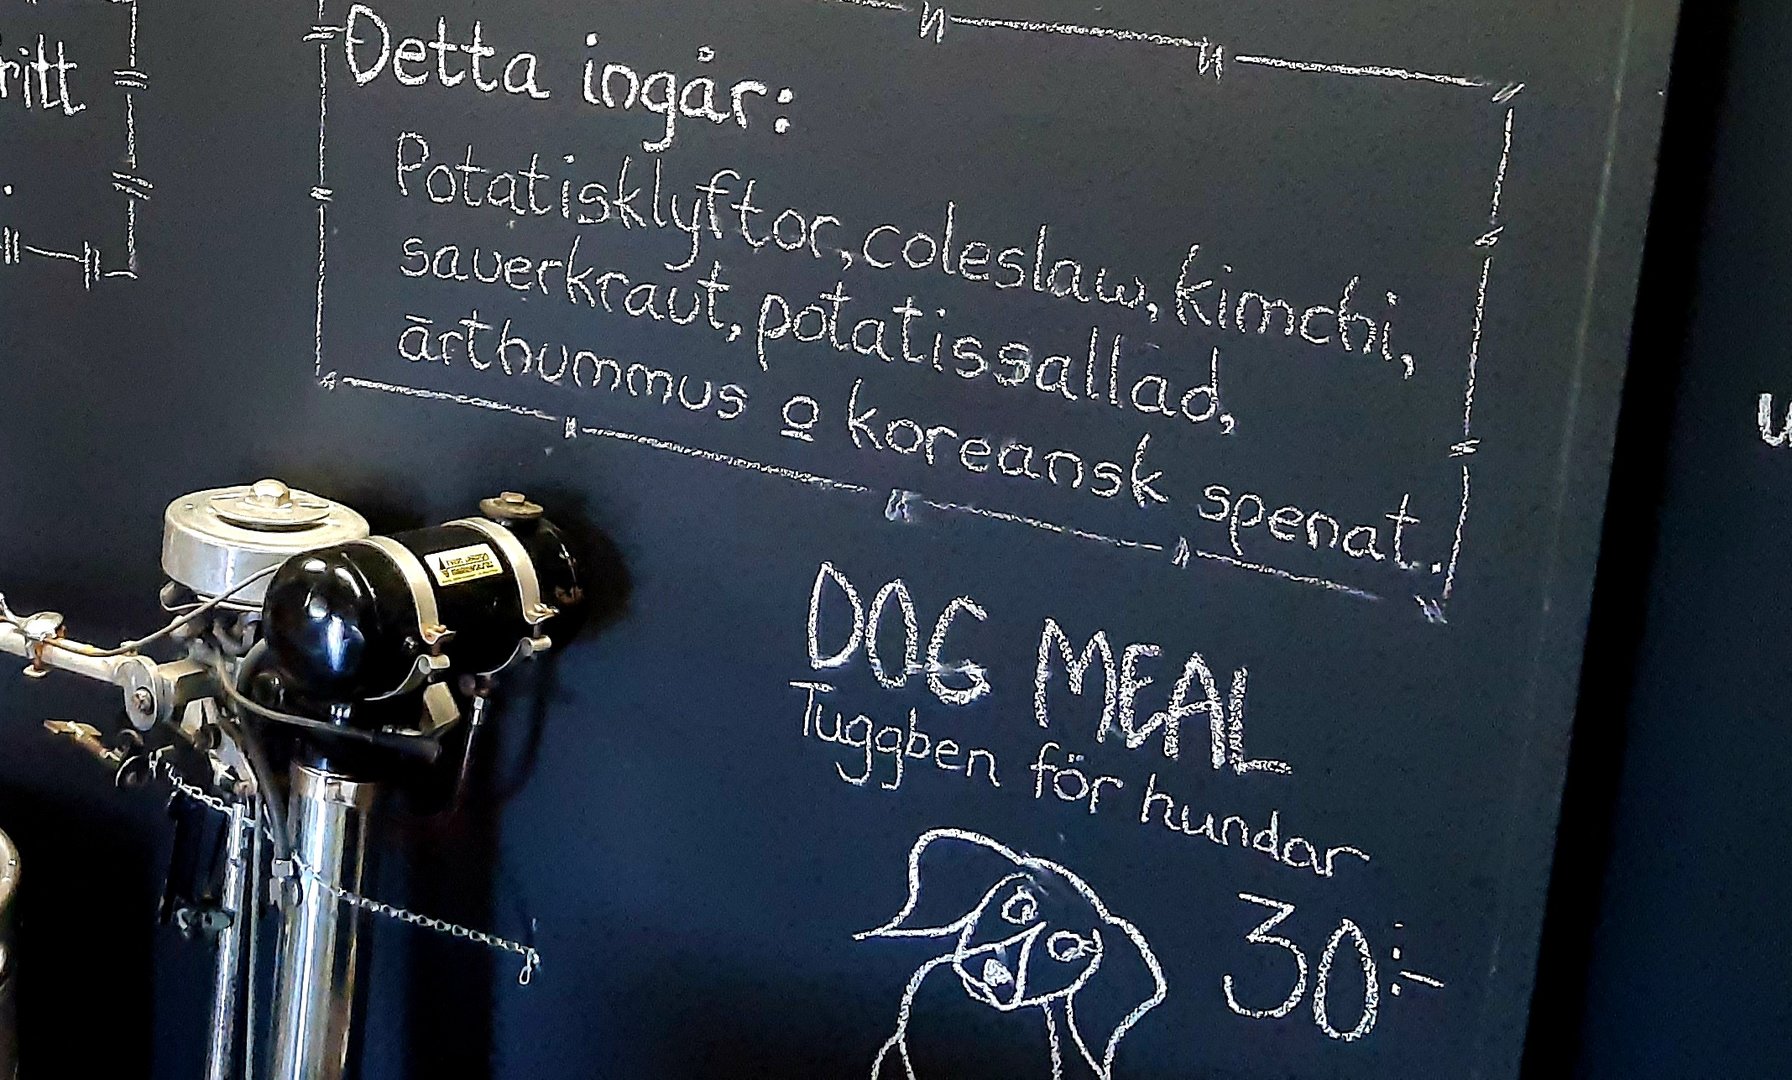 ritt
Detta ingår:
Potatisklyftor, coleslaw, kimchi,
sauerkraut, potatissallad,
ärthummus o koreansk spenat.
DOG MEAL
Tuggben för hundar
30:-